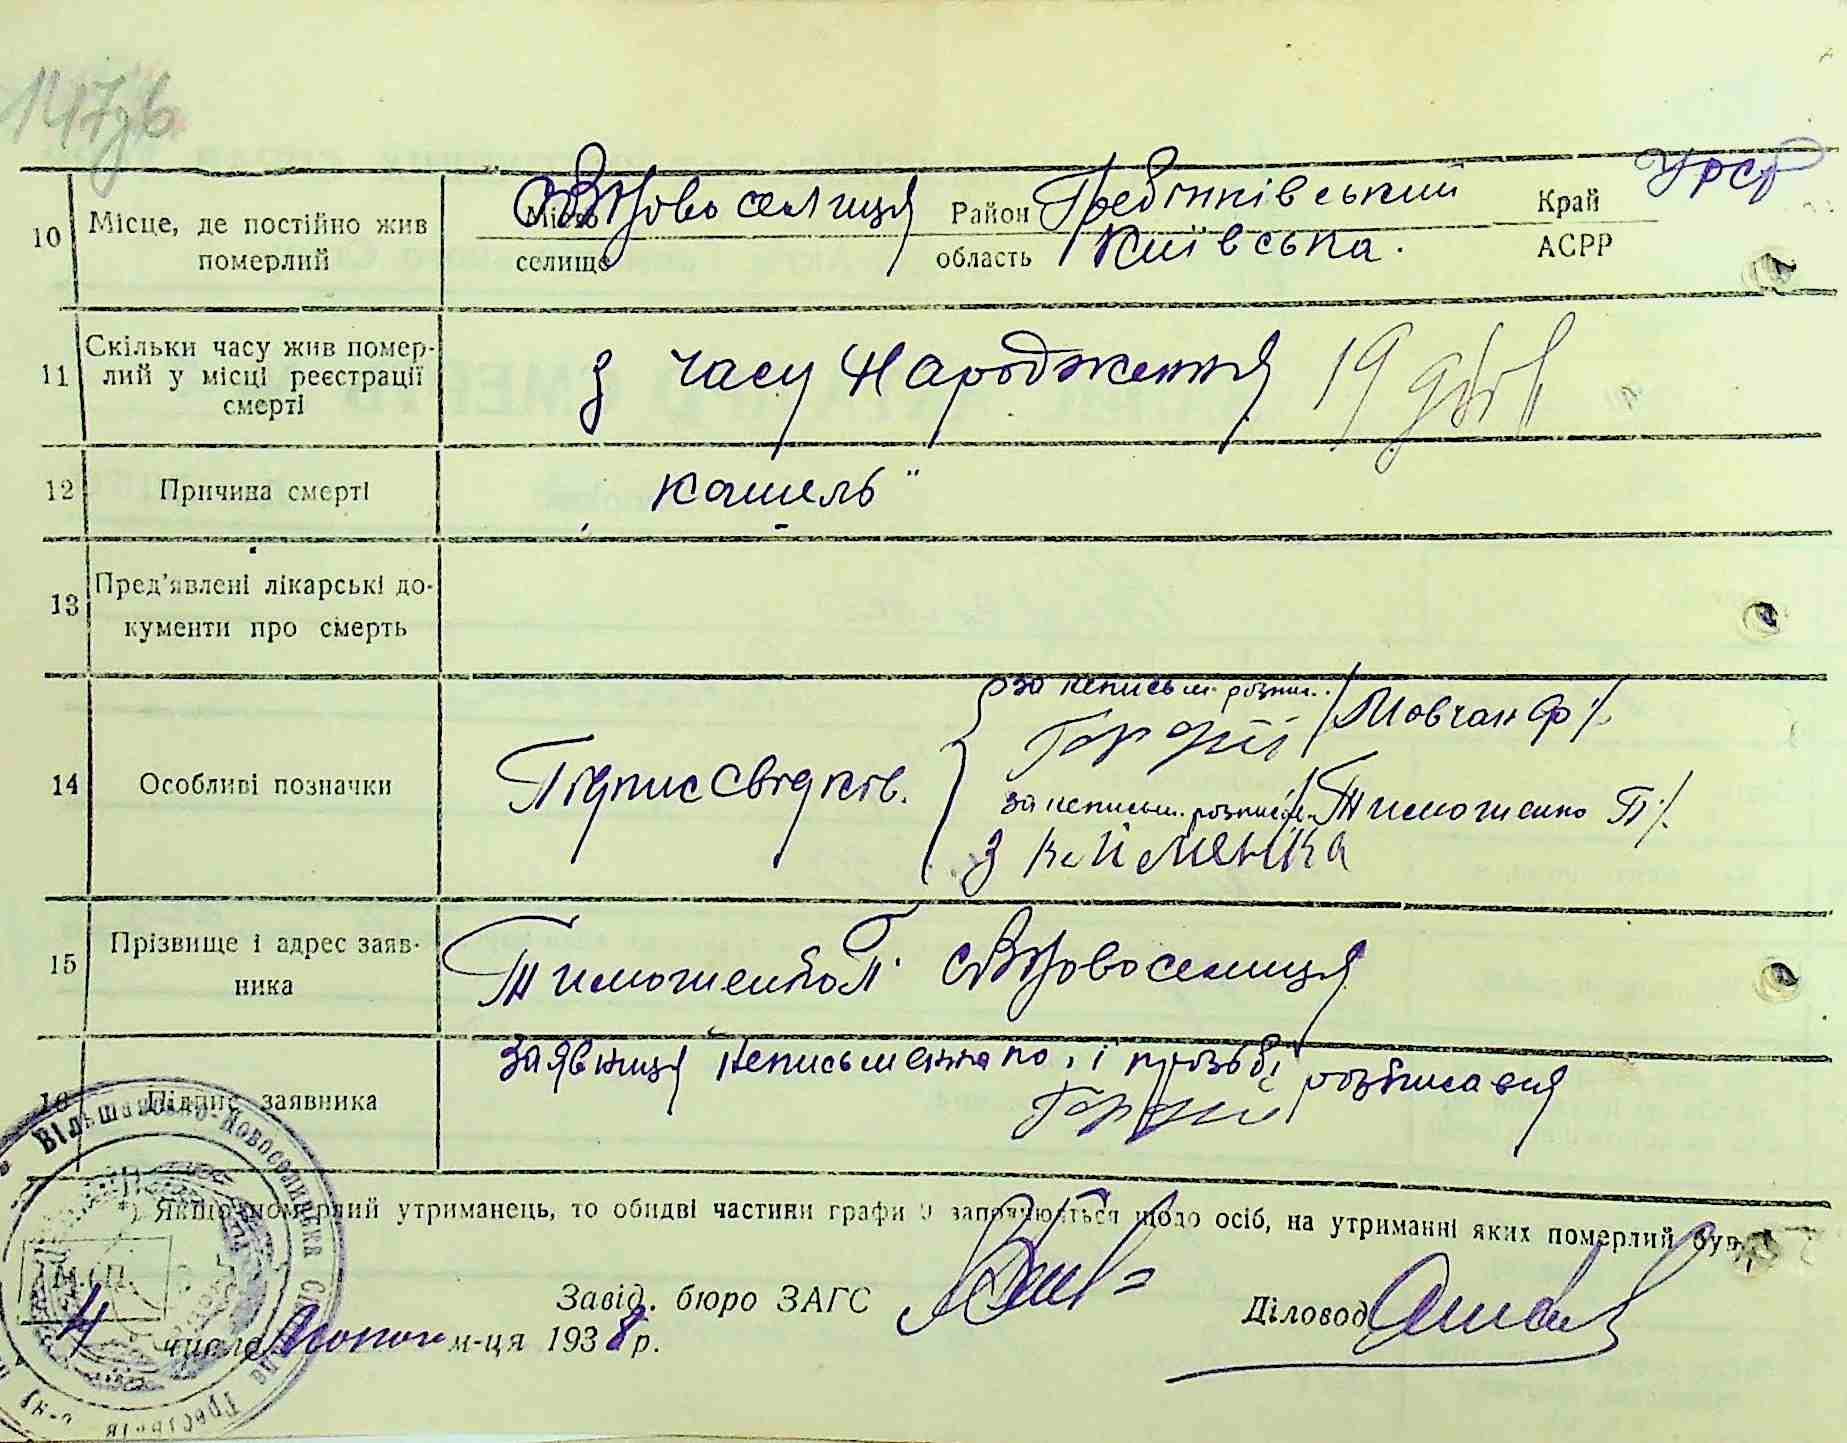 147зв
10 Місце, де постійно жив померлий
Місто селище с. В Новоселиця Район Гребінківський область Київська. Край АСРР УРСР
11 Скільки часу жив помер-
лий у місці реєстрації
смерті
з часу народження 19 днів
12 Причина смерті
„кашель"
13 Пред'явлені лікарські до-
кументи про смерть
14 Особливі позначки
Підпис свідків.
за неписьм. розпис. /Мовчан Ф/
за неписьм. розпис. /Тимошенко П/
З Клименка
15 Прізвище і адрес заяв-
ника
Тимошенко П. с. В Новоселиця
16 Підпис заявника
Заявниця неписьменна по її прозьбі розписався
*) Якщо померлий утриманець, то обидві частини графи 9 заповнюються щодо осіб, на утриманні яких померлий був.
М. П.
Завід. бюро ЗАГС
Діловод
4 числа лютого м-ця 1938 р.